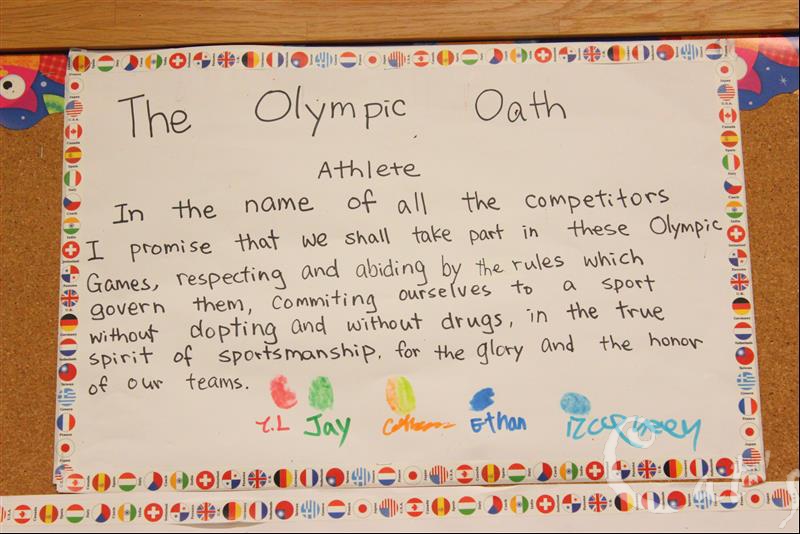 The Olympic Oath
Athlete
In the name of all the competitors
I promise that we shall take part in these Olympic
Games, respecting and abiding by the rules which
govern them, commiting ourselves to a sport
without dopting and without drugs, in the true
spirit of sportsmanship, for the glory and the honor
of our teams.
Y.L Jay Ethan